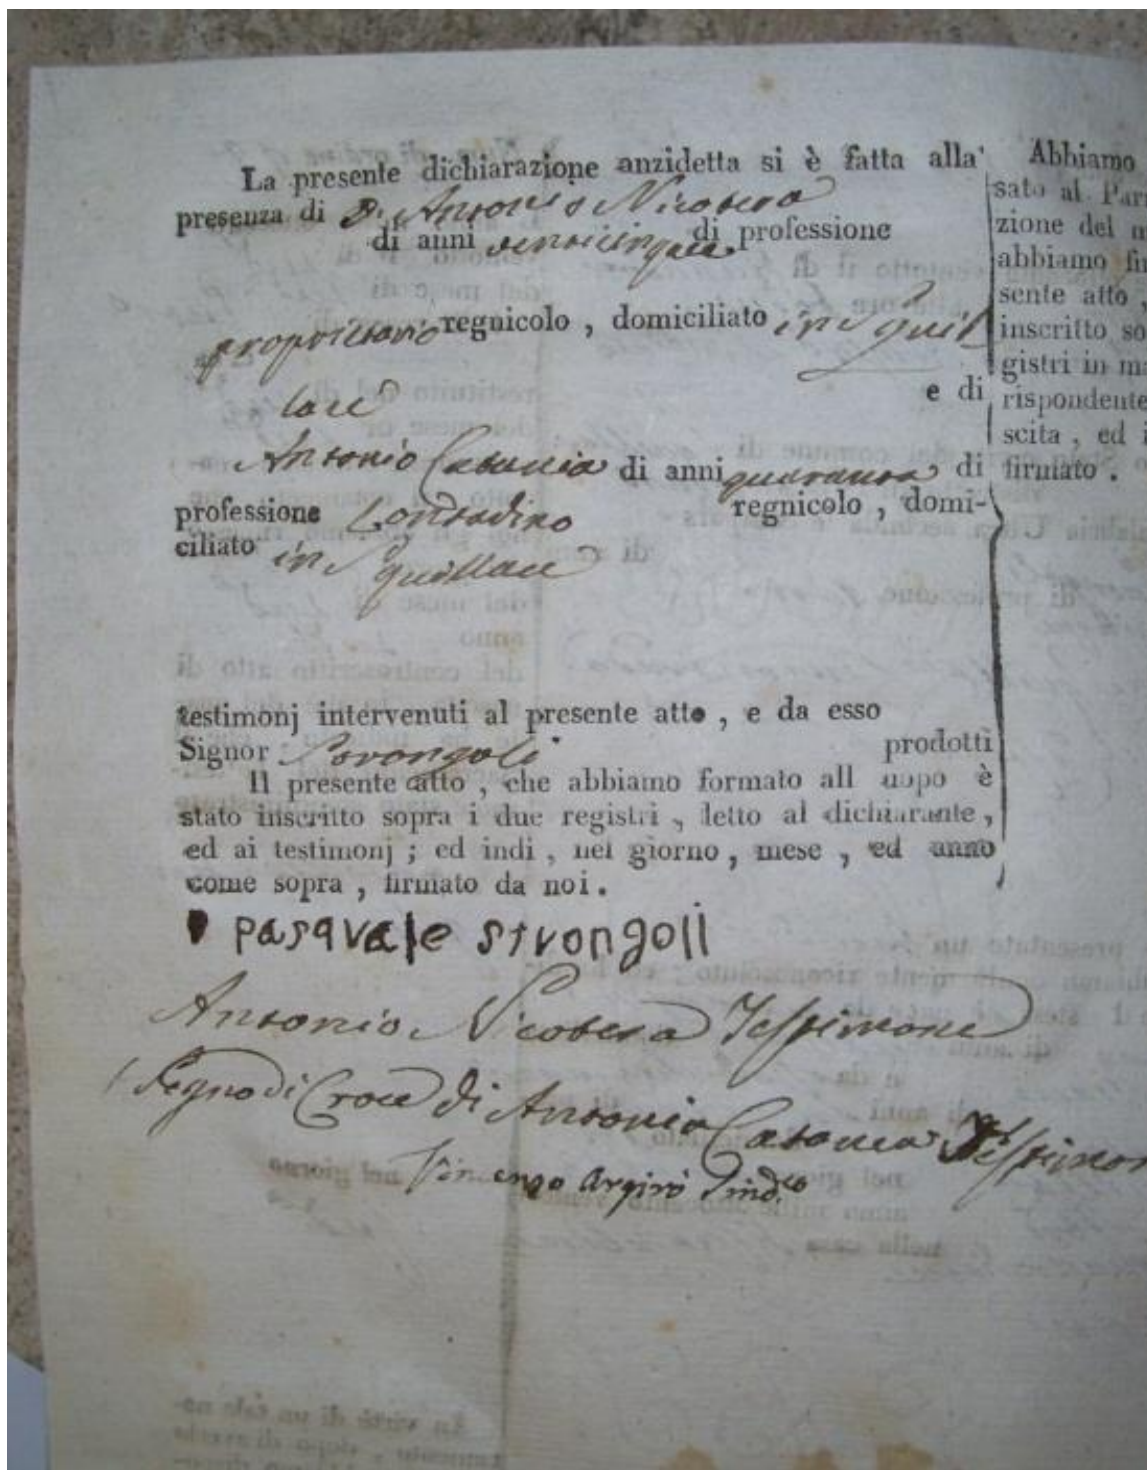 La presente dichiarazione anzidetta si è fatta alla
presenza di D. Antonio Nicotera
di anni venticinque di professione
proprietario regnicolo, domiciliato in Squil
lace e di
Antonio Catania di anni quaranta di
professione Contadino regnicolo, domi-
ciliato in Squillace
testimonj intervenuti al presente atto, e da esso
Signor Strongoli prodotti
Il presente atto, che abbiamo formato all uopo è
stato inscritto sopra i due registri, letto al dichiarante,
ed ai testimonj; ed indi, nel giorno, mese, ed anno
come sopra, firmato da noi.
pasqvale strongoli
Antonio Nicotera Testimone
Segno di Croce di Antonio Catania Testimon
Vincenzo Argirò Sind.co
Abbiamo
sato al Parr
zione del
abbiamo fir
sente atto
inscritto so
gistri in ma
rispondente
scita, ed i
firmato.